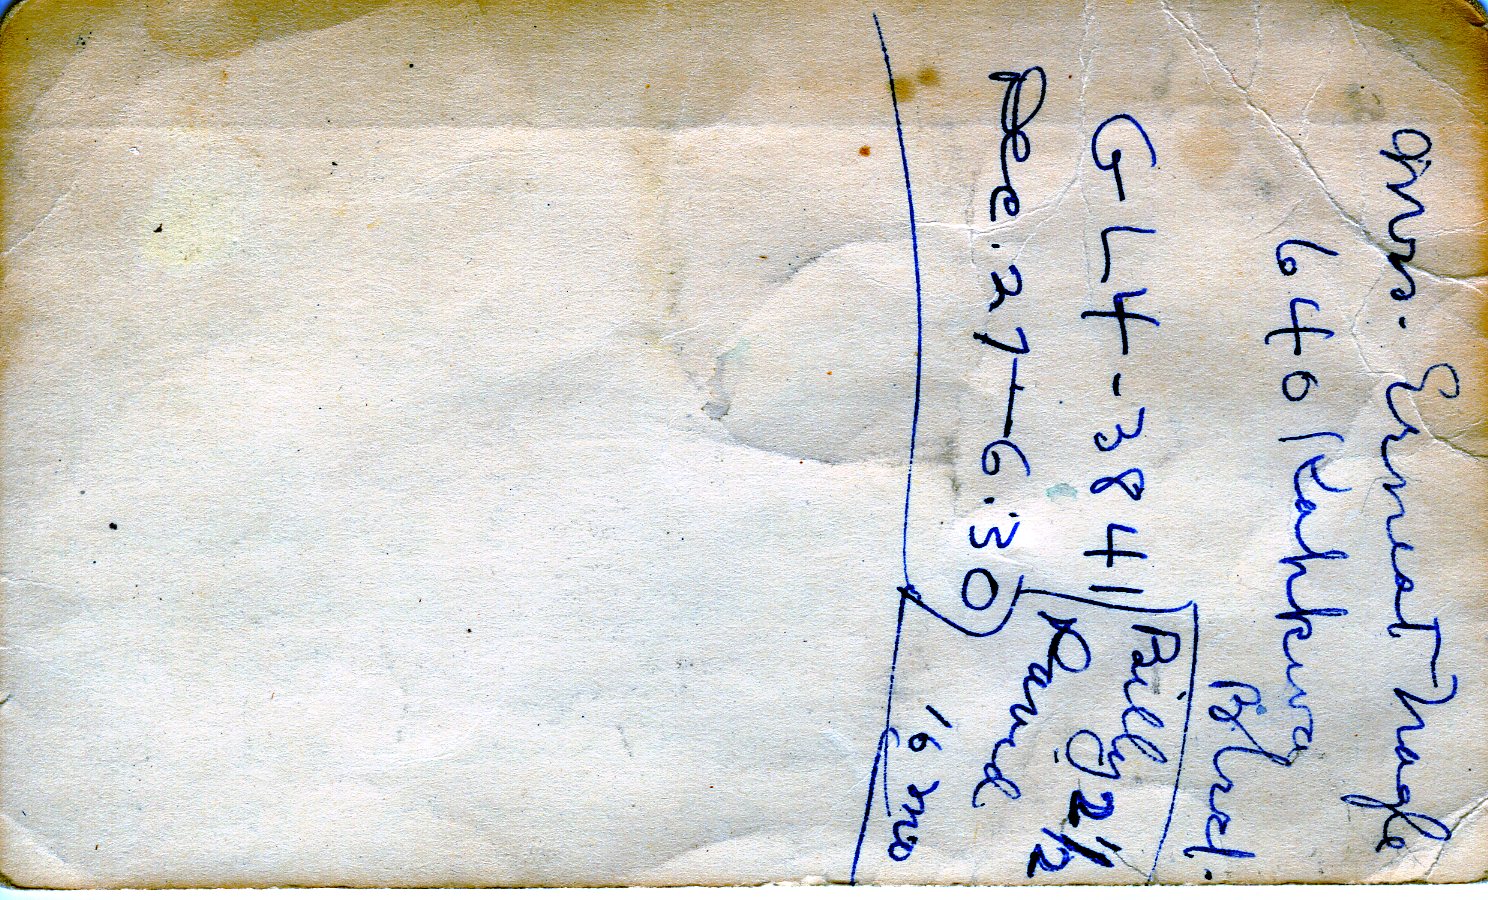 Mrs. Ernest Nagle
6401 Kahkwa
Blvd.
GL4-3841
Dec. 27 - 6:30
Billy 2 1/2
David
16 mo